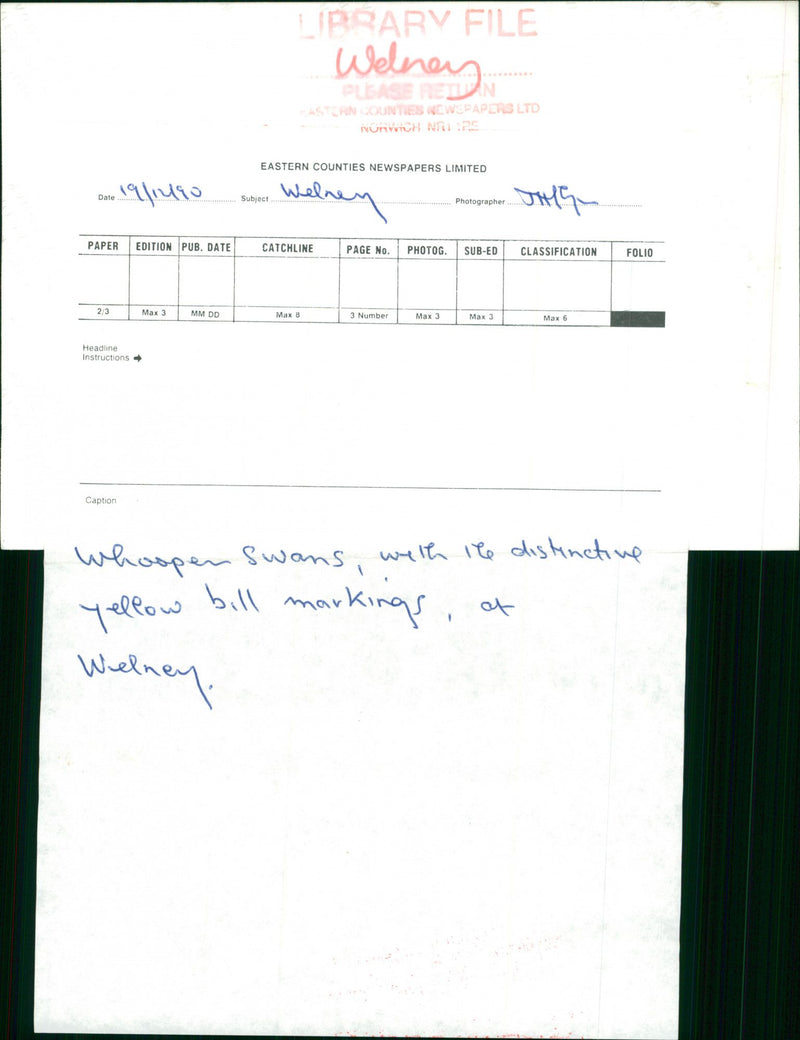 LIBRARY FILE
Welney
PLEASE RETURN
EASTERN COUNTIES NEWSPAPERS LTD
NORWICH NR1
EASTERN COUNTIES NEWSPAPERS LIMITED
Date 19/12/90 Subject Welney Photographer
PAPER EDITION PUB. DATE CATCHLINE PAGE No. PHOTOG. SUB-ED CLASSIFICATION FOLIO
2/3 Max 3 MM DD Max 8 3 Number Max 3 Max 3 Max 6
Headline
Instructions ➔
Caption
Whooper Swans, with its distinctive
yellow bill markings, at
Welney.